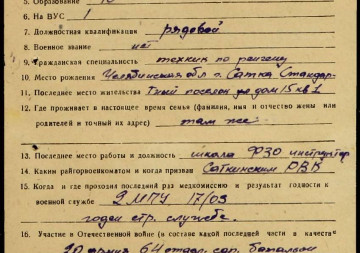 5. Образование 10
6. На ВУС 1
7. Должностная квалификация рядовой
8. Военное звание
9. Гражданская специальность техник по ремонту
10. Место рождения Челябинская обл г. Сатка Стандар-
11. Последнее место жительства поселок дом 15 кв 1
12. Где проживает в настоящее время семья (фамилия, имя и отчество жены или
родителей и точный их адрес) там же
13. Последнее место работы и должность школа ФЗО инструктор
14. Каким райгорвоенкоматом и когда призван Саткинским РВК
15. Когда и где проходил последний раз медкомиссию и результат годности к
военной службе 2 МПУ 17/03
годен стр. службе.
16. Участие в Отечественной войне (в составе какой последней части и в качестве
20 армия 64 отдел. сап. батальон